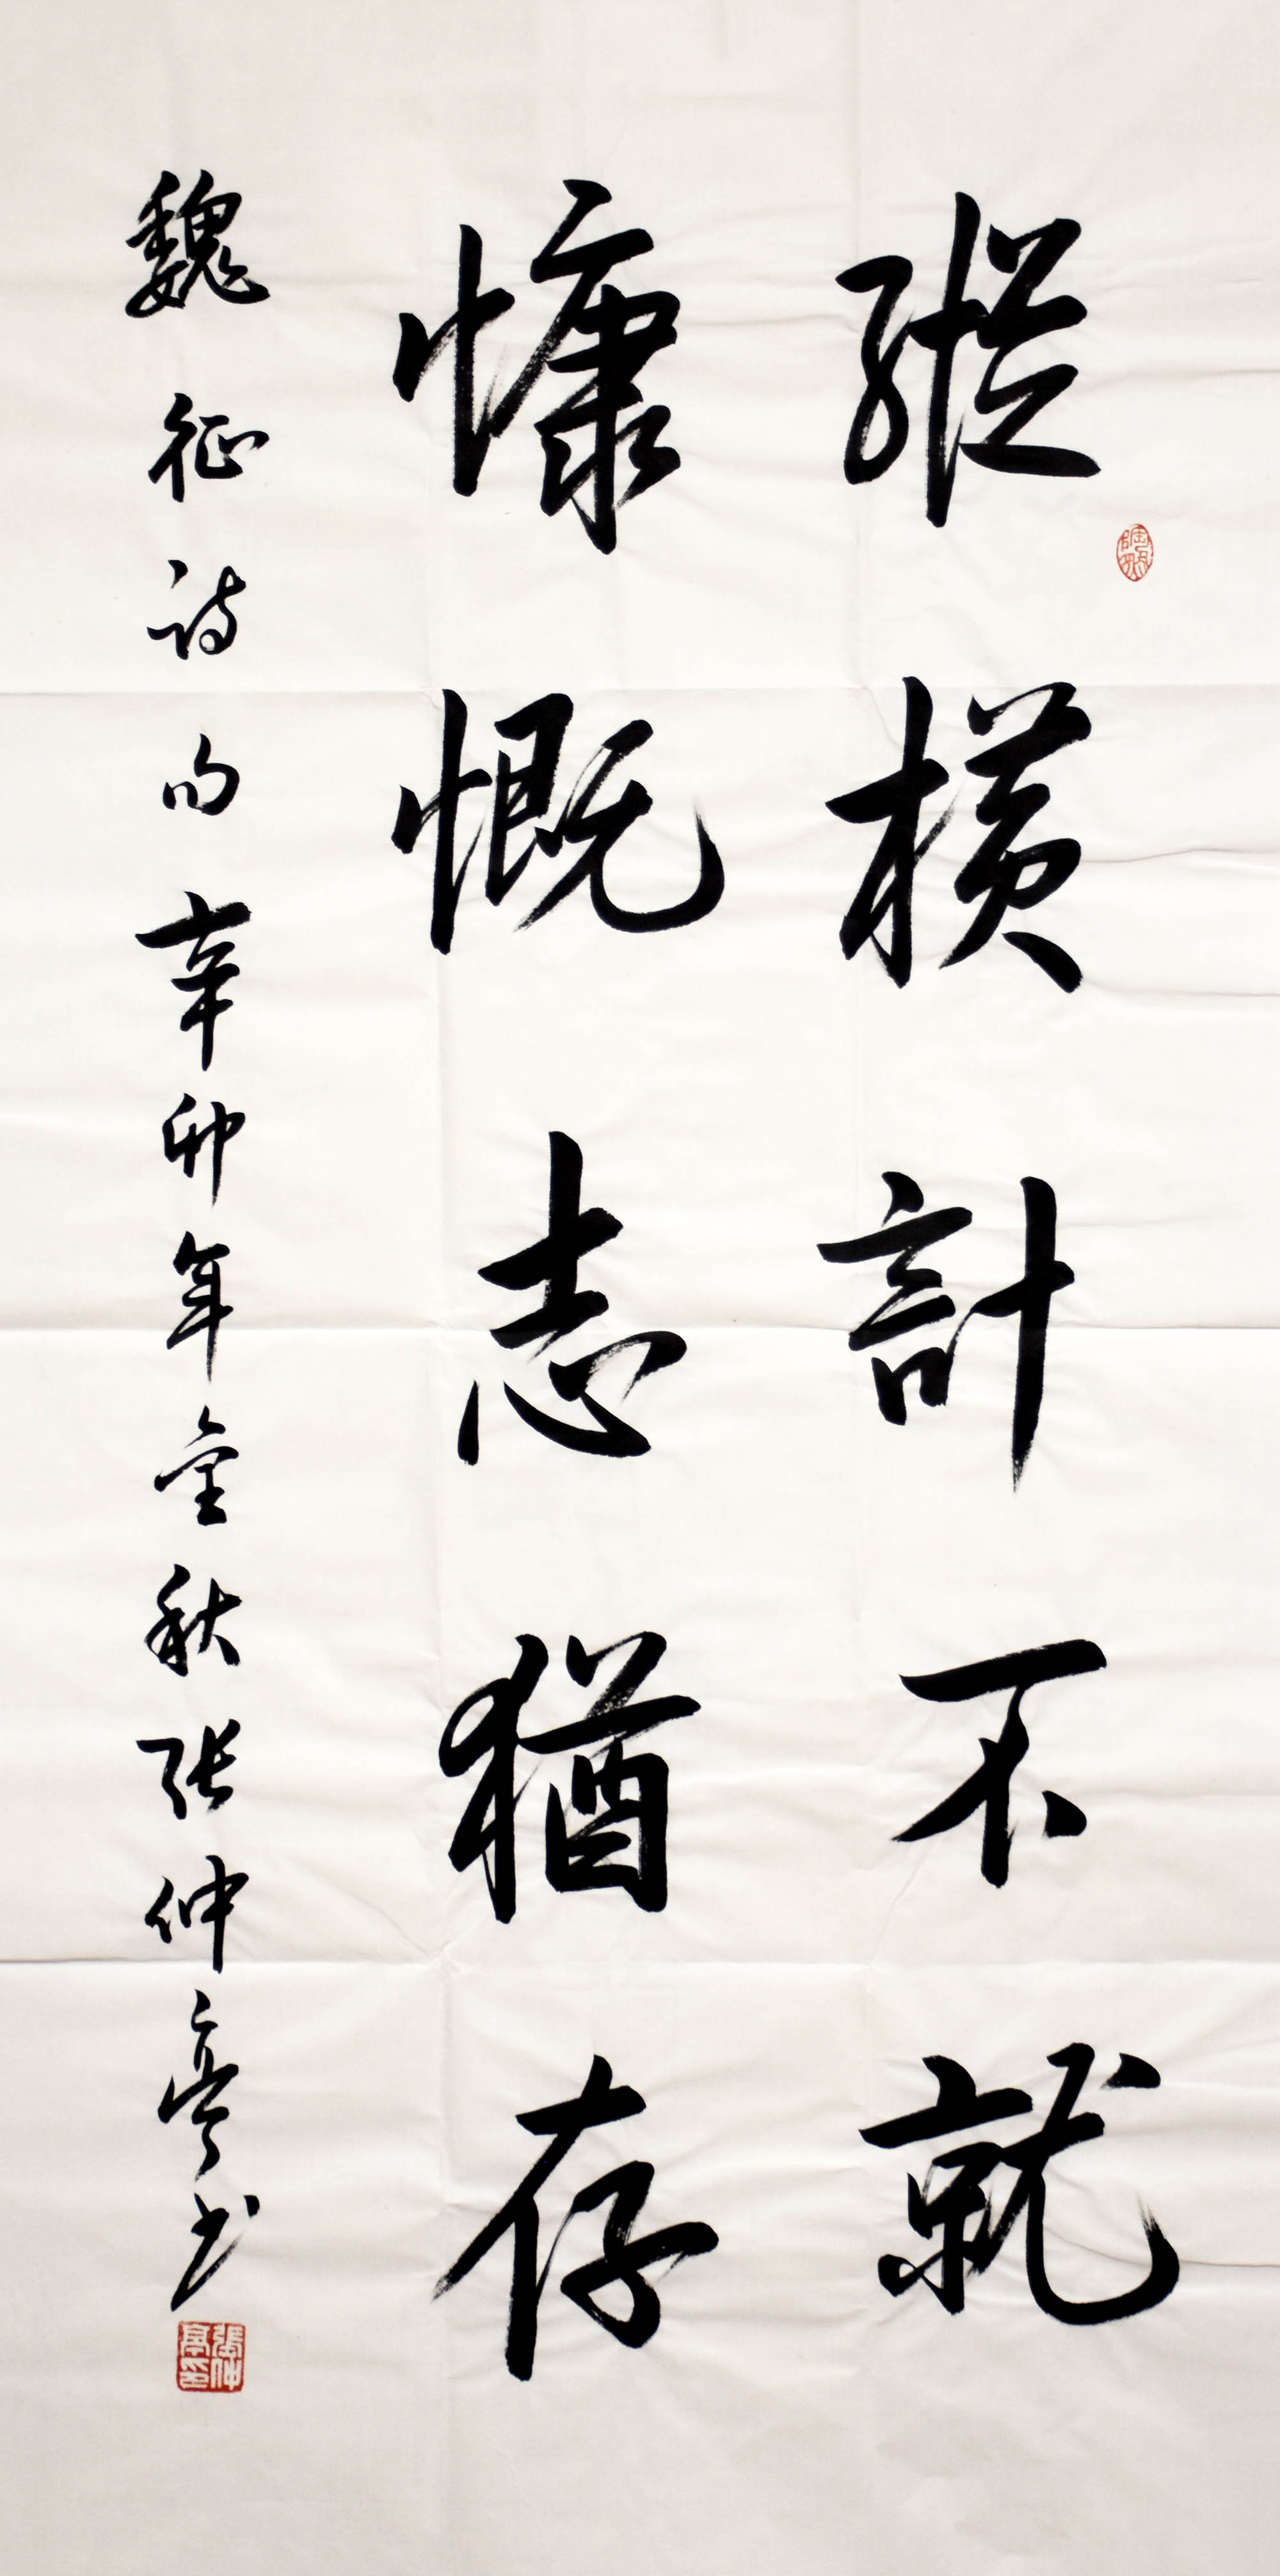 縱橫計不就
慷慨志猶存
魏征诗句辛卯年金秋张仲亭书
張仲亭印